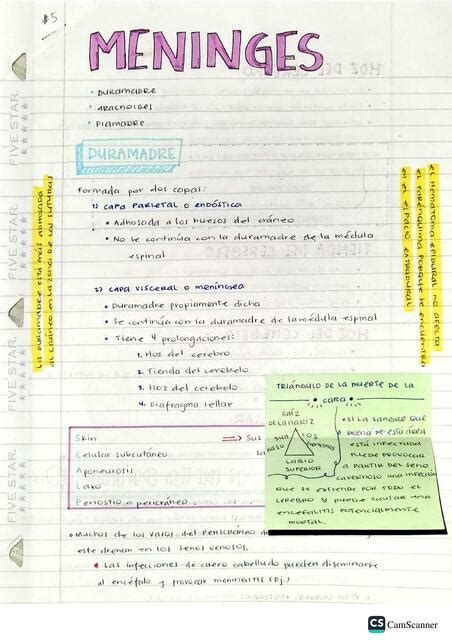 #5
MENINGES
• DURAMADRE
• ARACNOIDES
• PIAMADRE
DURAMADRE
Formada por dos capas:
1) CAPA PARIETAL O ENDÓSTICA
• Adhosada a los huesos del cráneo
• No se continúa con la duramadre de la médula
espinal
2) CAPA VISCERAL O MENÍNGEA
• Duramadre propiamente dicha
• Se continúa con la duramadre de la médula espinal
• Tiene 4 prolongaciones:
1. Hoz del cerebro
2. Tienda del cerebelo
3. Hoz del cerebelo
4. Diafragma sellar
Skin
Celular subcutáneo
Aponeurosis
Laxo
Periostio o pericráneo
⇒ Sus
• Muchos de los vasos del pericráneo
este drenan en los senos venosos.
* Las infecciones de cuero cabelludo pueden diseminarse
al encéfalo y provocar meningitis (Ej.)
La duramadre está más adhosada
al cráneo en la zona de las suturas
El hematoma epidural no afecta
el parénquima porque se encuentra
en el espacio extradural
TRIÁNGULO DE LA MUERTE DE LA
• CARA •
RAÍZ
DE LA NARIZ
LABIO
SUPERIOR
• SI LA SANGRE QUE
DRENA DE ESTA ÁREA
ESTÁ INFECTADA
PUEDE PROVOCAR
A PARTIR DEL SENO
CAVERNOSO UNA INFECCIÓN
QUE SE EXTIENDE POR TODO EL
CEREBRO Y PUEDE CAUSAR UNA
ENCEFALITIS POTENCIALMENTE
MORTAL.
FIVE STAR.
FIVE STAR.
FIVE STAR.
FIVE STAR.
CS CamScanner